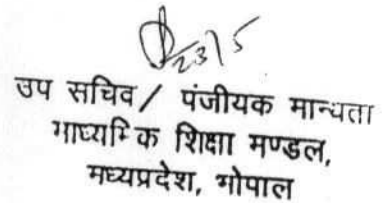 23/5
उप सचिव / पंजीयक मान्यता
माध्यमिक शिक्षा मण्डल,
मध्यप्रदेश, भोपाल